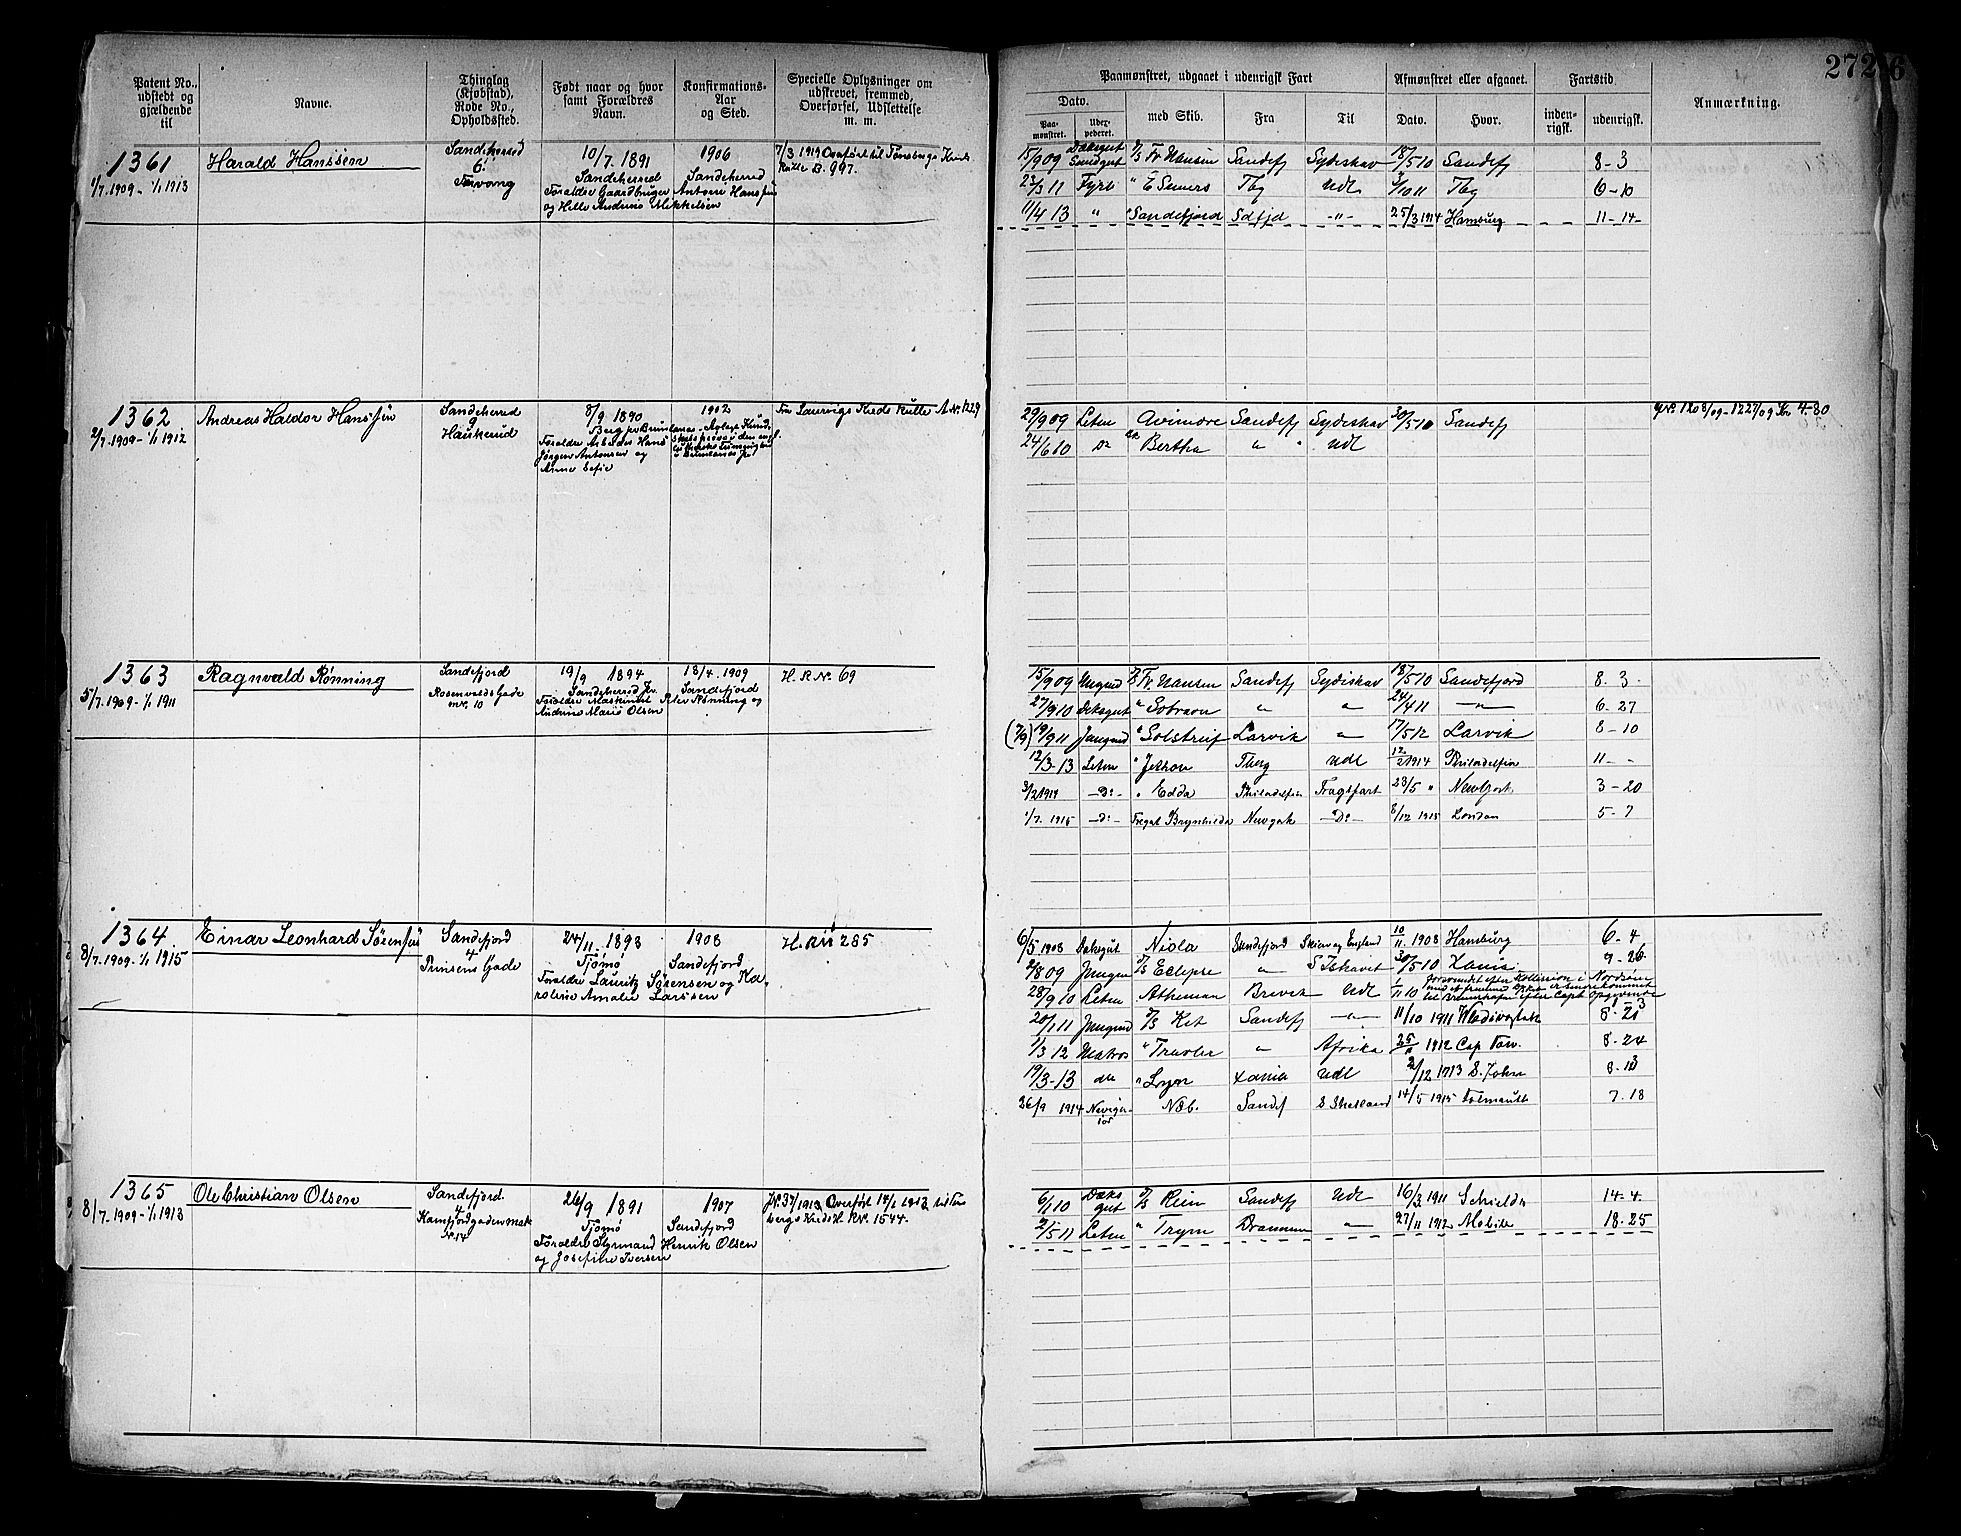 272
Patent No., udstedt og gjældende til
Navne.
Thinglag (Kjøbstad), Rode No., Opholdssted.
Født naar og hvor samt Forældres Navn.
Konfirmations-Aar og Sted.
Specielle Oplysninger om udskrevet, fremmed, Overførsel, Udslettelse m. m.
Paamønstret, udgaaet i udenrigsk Fart
Afmønstret eller afgaaet.
Fartstid.
Anmærkning.
Dato.
Paa-mønstret.
med Skib.
Fra
Til
Dato.
Hvor.
inden-rigsk.
udenrigsk.
1361
1/7.1909-1/1 1913
Harald Hanssen
Sandeherred
6
10/7. 1891
Sandeherred
Forældre Gaardbruger Anton Hanssen
og Helle Andrine Mikkelsen
1906
Sandeherred
7/3 1919 Overført til Tønsbergs Kreds
Rulle B. 997.
15/9 09 Dæksgut Fr. Nansen Sandefj Sydishav 18/5 10 Sandefj 8-3
23/3 11 Fyrb Tbg Udl 10 11 Tbg 6-10
11/4 13 " Sandefjord Sdfjd -"- 25/3 1914 Hamburg 11-14-
1362
2/7.1909-1/1 1912
Andreas Haldor Hanssen
Sandeherred
9
Haukerud
8/9 1890
Berg pr Brunlanes
Forældre Arbeider Hans
Jørgen Antonsen og
Anne Sofie
1902
Fra Laurvigs Kreds rulle A.Nr.1229
29/9 09 Letm Avimore Sandefj Sydishav 30/5 10 Sandefj
24/6 10 Do Bertha " " Udl
1363
5/7.1909-1/1 1911
Ragnvald Rønning
Sandefjord
Rosenvolds Gade
nr. 10
19/9 1894
Forældre Maskinist Peter Rønning og
Andrine Marie Olsen
18/4. 1909
Sandefjord
H. R Nr. 69
15/9 09 Fr. Nansen Sandefj Sydishav 18/5 10 Sandefjord 8.3.
27/9 10 Dæksgut " Sobraon " " 24/4 11 -"- 6-27
(7/9) 19/9 11 Jungmd " Solstreif Larvik " 17/5 12 Larvik 8-10
12/3-13 Letm " Jethou Tbrg Udl 12/2 1914 Philadelfia 11 - -
3/2 1914 -Do- " Edda Philadelfia Fragtfart 23/5 " New York 3-20
1/7. 1915 -do- Fregat Brynhilda Newyork -Do- 8/12 1915 London 5-7
1364
8/7.1909-1/1 1915
Einar Leonhard Sørensen
Sandefjord
4
Prinsens Gade
24/11. 1893
Tjømø
Forældre Lauritz Sørensen og Ka-
roline Amalie Larssen
1908
Sandefjord
H. R Nr 285
6/5 1908 Dæksgut Niola Sandefjord Skien og England 10/11. 1908 Hamburg 6-4
2/8 09 Jungm Eclipse " S Ishavet 30/5 10 9-26
28/9 10 Letm Athenian Brevik Udl 11 10 Forsvundet efter Kollision i Nordsjøen
20/1 11 Jungmd Kit Sandefj -"- 11/10 1911 Wladivostok 8-21
1/3 12 Matros " Traveler " Afrika 25 1912 Cap Tow. 8-24
19/3-13 do " Lyn Xania Udl 2/12 1913 S. John
26/9 1914 Næb. Sandefj S Shetland 14/5 1915 Falmouth 7.18
1365
8/7.1909-1/1 1913
Ole Christian Olsen
Sandefjord.
4
Nr. 14
26/9 1891
Tjømø
Forældre Styrmand Henrik Olsen
og Josefine Iversen
1907
Sandefjord
J.Nr. 37/1913 Overført 14/1 1913 til Tøns
bergs Kreds H. R Nr. 1544-
6/1 10 Dæks gut Rein Sandefj Udl 16/3 1911 Shields 14-4-
2/5 11 Letm " Trym Drammen -"- 27/11 1912 Mobile 18-25